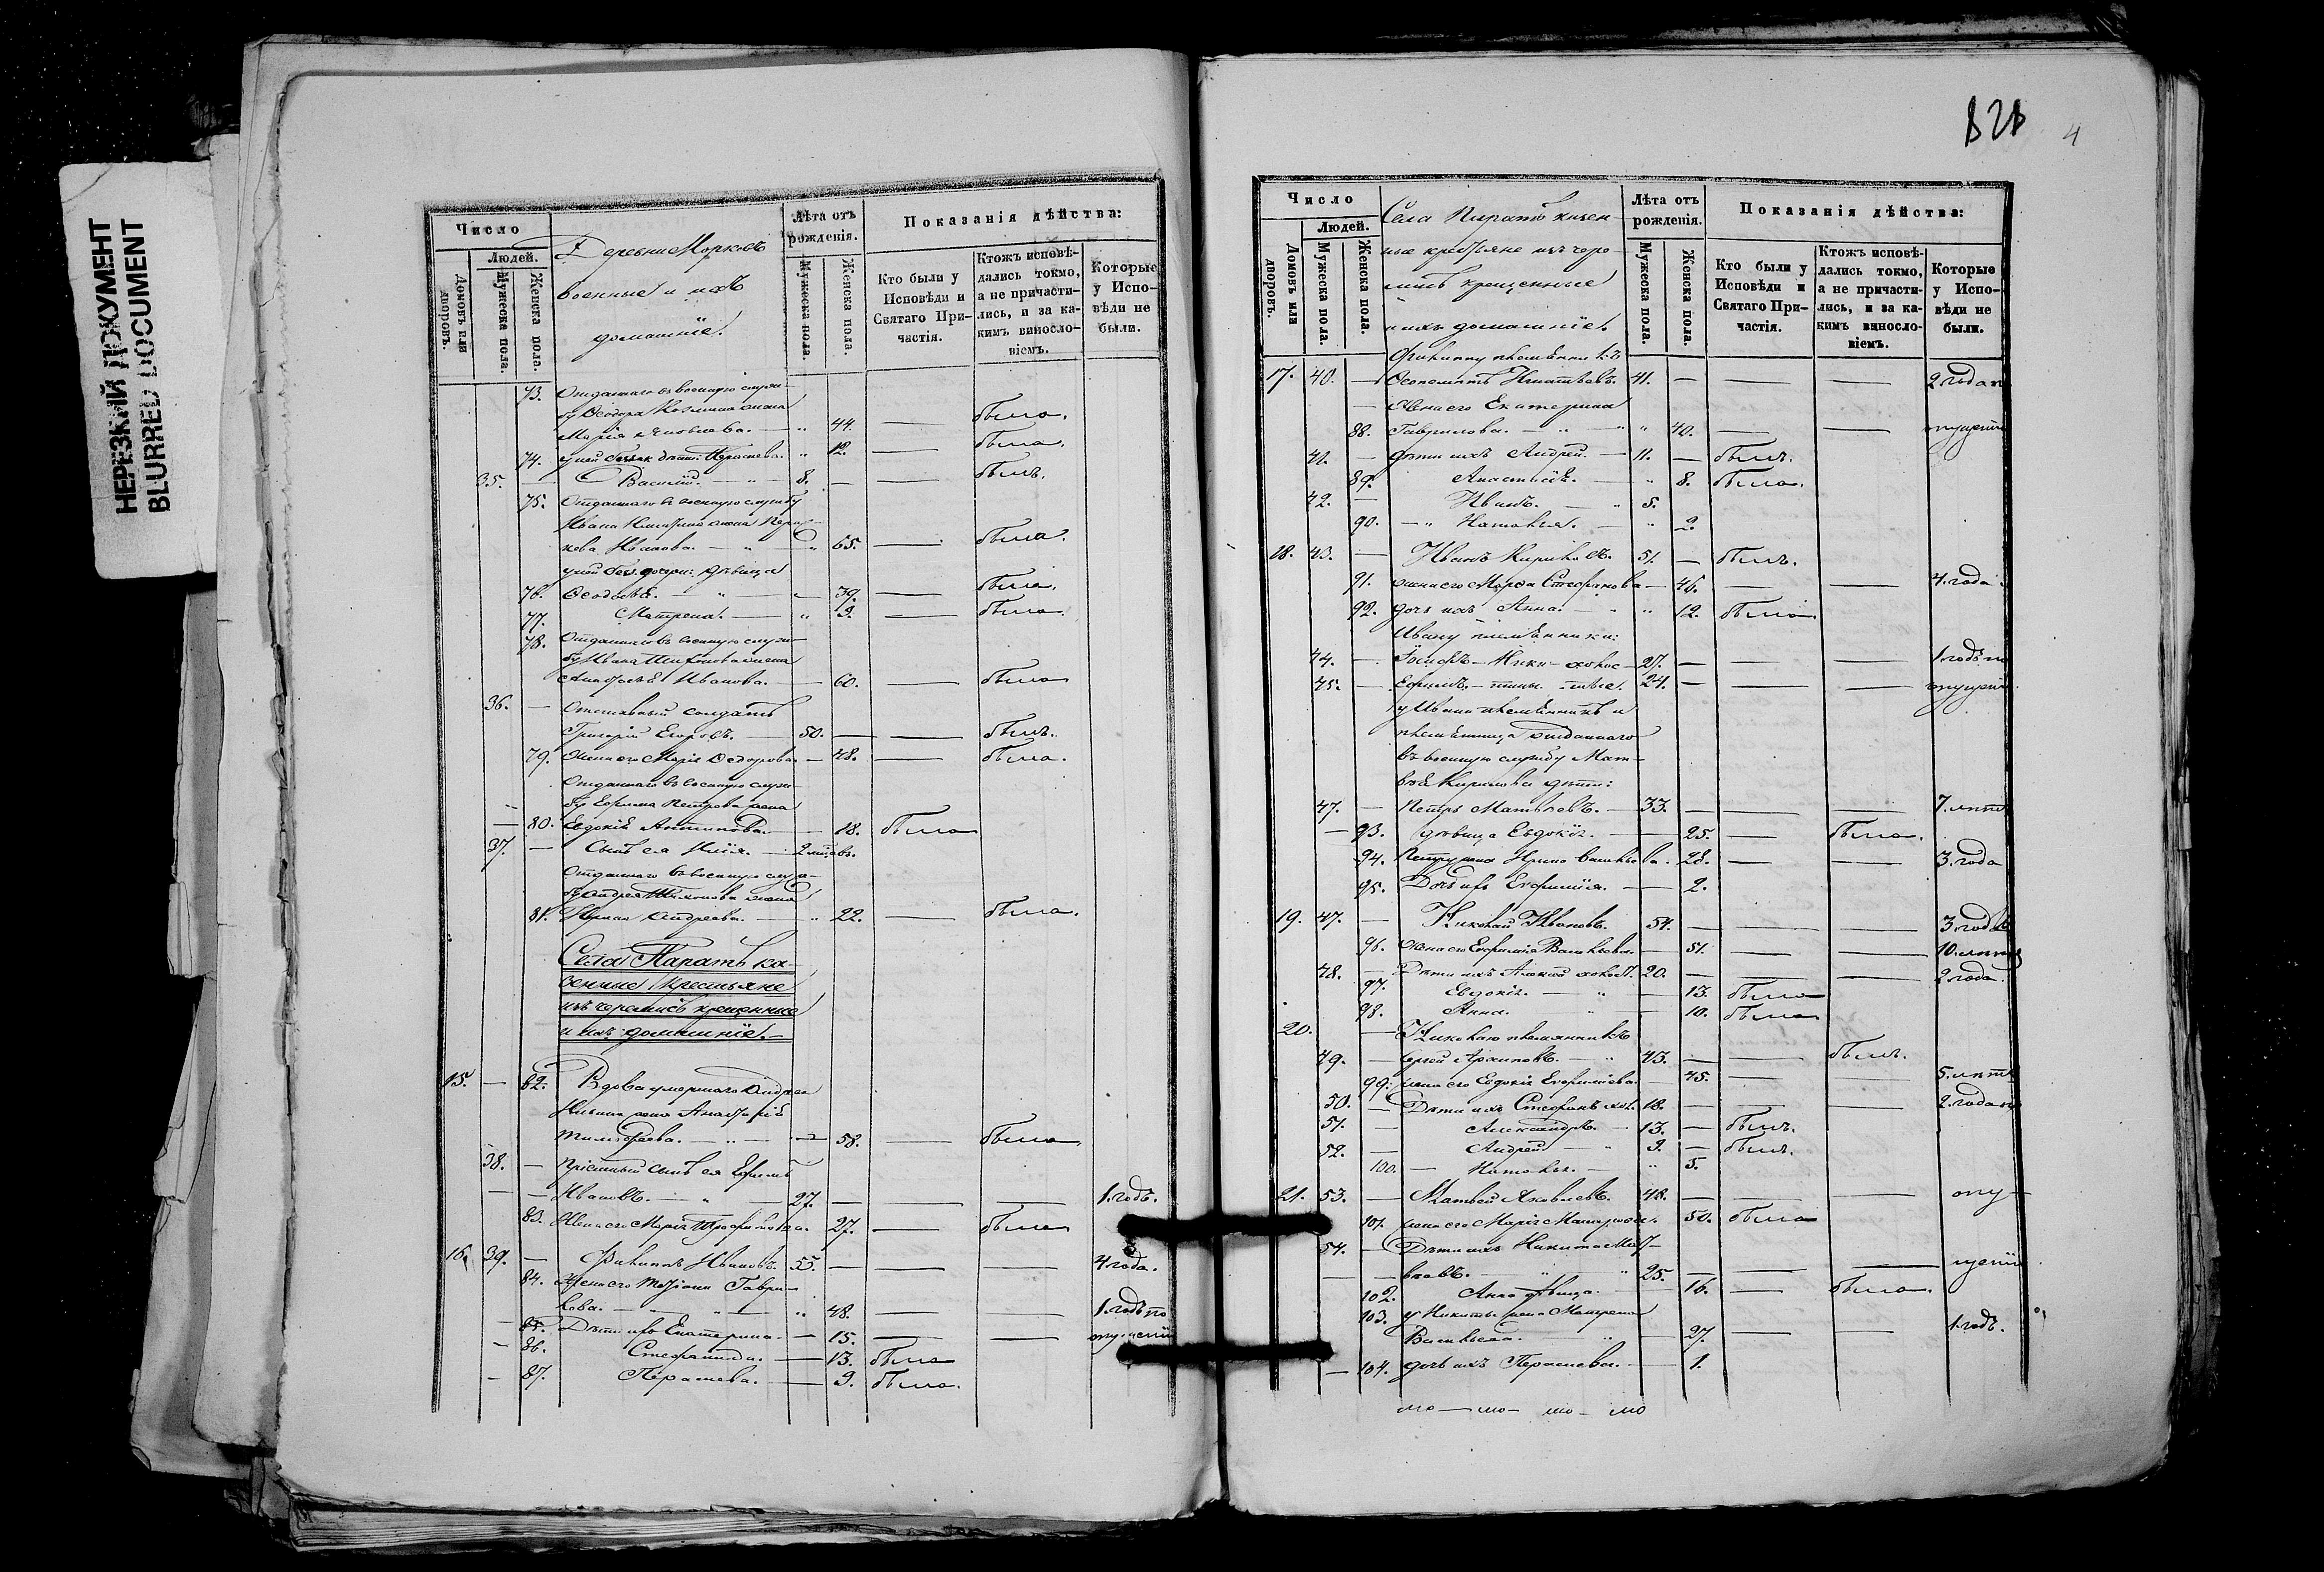 НЕРЕЗКИЙ ДОКУМЕНТ
BLURRED DOCUMENT
Число
Людей.
Домовъ или дворовъ.
Мужеска пола.
Женска пола.
Деревни
военные и ихъ
домашніе.
Лѣта отъ рожденія.
Мужеска пола.
Женска пола.
Показанія дѣйства:
Кто были у Исповѣди и Святаго Причастія.
Ктожъ исповѣдались токмо, а не причастились, и за какимъ винословіемъ.
Которые у Исповѣди не были.
73. Отданнаго въ военную служ-
бу Ѳеодора жена
Марія Яковлева. — " 44. — была.
74. у ней дѣти: " 12. — была.
35. — Василій. — " — 8. — — былъ.
75. Отданнаго въ военную службу
Ивана жена
Иванова. — " — " 65. — была.
у ней дочери: дѣвица
76. Ѳеодосія. " — 39. — была.
77. Матрена. — " 9. — была.
78. Отданнаго въ военную служ-
бу Ивана жена
Анастасія Иванова. — 60. — была
36. — Отставный солдатъ
Григорій Егоровъ. — 50. — — былъ.
79. Жена его Марія Ѳедорова — 48. — была.
Отданнаго въ военную служ-
бу Ефима Петрова жена
— 80. Евдокія Антипова. — 18. была
37. — Сынъ ея Илія. — 2 мѣсяц.
Отданнаго въ военную служ-
бу Андрея Тихонова жена
81. Андреева. — " 22. — была.
Села Паратъ ка-
зенные крестьяне
изъ черемисъ крещенные
и ихъ домашніе. —
15. — 82. Вдова умершаго Андрея
жена Анастасія
Тимоѳеева. — " — — 58. — была
38. — Пріемный сынъ ея Ефимъ
— — Ивановъ. — " — 27. — — — 1. годъ.
83. Жена его Марія Трофимова. 27. — была
16. 39. — Филиппъ Ивановъ. 55. — — — 4 года.
84. Жена его Татіана Гаври-
лова. — " — " 48. — — 1. годъ по
— 85. Дѣти ихъ Екатерина. — 15. — — опущенію
— 86. Стефанида. — 13. была
— 87. Параскева. — 9. была.
4
Число
Людей.
Домовъ или дворовъ.
Мужеска пола.
Женска пола.
Села Паратъ казен-
ные крестьяне изъ чере-
мисъ крещенные
и ихъ домашніе.
Лѣта отъ рожденія.
Мужеска пола.
Женска пола.
Показанія дѣйства:
Кто были у Исповѣди и Святаго Причастія.
Ктожъ исповѣдались токмо, а не причастились, и за какимъ винословіемъ.
Которые у Исповѣди не были.
Филиппу племянникъ
17. 40. — Ѳеопемптъ Игнатьевъ. 41. — — — 2. года по
— Жена его Екатерина
88. Гаврилова. — " — " 40. — — опущенію
41. — Дѣти ихъ Андрей. — 11. — былъ.
89. Анастасія. — " 8. была.
42. — Иванъ. — " 5.
90. — " Наталья. — " 2.
18. 43. — Иванъ Кириловъ. 51. — былъ.
91. жена его Марѳа Стефанова — 46. — — 4. года
92. дочь ихъ Анна. — " " 12. была
Ивану племянники:
44. — Іосифъ — Ники- холос- 27. — — — 1. годъ по
45. — Ефимъ. — тины. — тые. 24. — — — опущен.
у Ивана племянникъ и
племянница отданнаго
въ военную службу Мат-
вѣя Кирилова дѣти:
47. — Петръ Матвѣевъ. — 33. — — 7. лѣтъ
— 93. дѣвица Евдокія. — — 25. — была.
94. Петру жена Ирина Васильева. 28. — — 3. года
95. Дочь ихъ Евфимія. — — 2.
19. 47. — Николай Ивановъ. 54. — — — 3. года
96. Жена его Евфимія Васильева. — 51. — — 10. лѣтъ
48. — Дѣти ихъ Алексѣй холост. 20. — — — 2. года
97. Евдокія. — " — 13. была
98. Анна. " — 10. была
20. — Николаю племянникъ
49. — Сергѣй Архиповъ. — " 43. — — былъ.
99. жена его Евдокія Евфиміева. — 45. — — 5. лѣтъ
50. — Дѣти ихъ Стефанъ хол. 18. — — — 2. года по
51. — Александръ. — 13. — былъ.
52. — Андрей. — " 9. — былъ.
100. — Наталья. — " 5.
21. 53. — Матвей Яковлевъ. 48. — — — опу-
101. жена его Марія Макарова. 50. была
54. — Дѣти ихъ Никита Мат-
— — вѣевъ. — " " 25. — — — щенію
102. Анна дѣвица. — — 16. — была.
103. у Никиты жена Матрена
Васильева. — " — 27. — — 1. годъ.
— 104. дочь ихъ Параскева. — — 1.